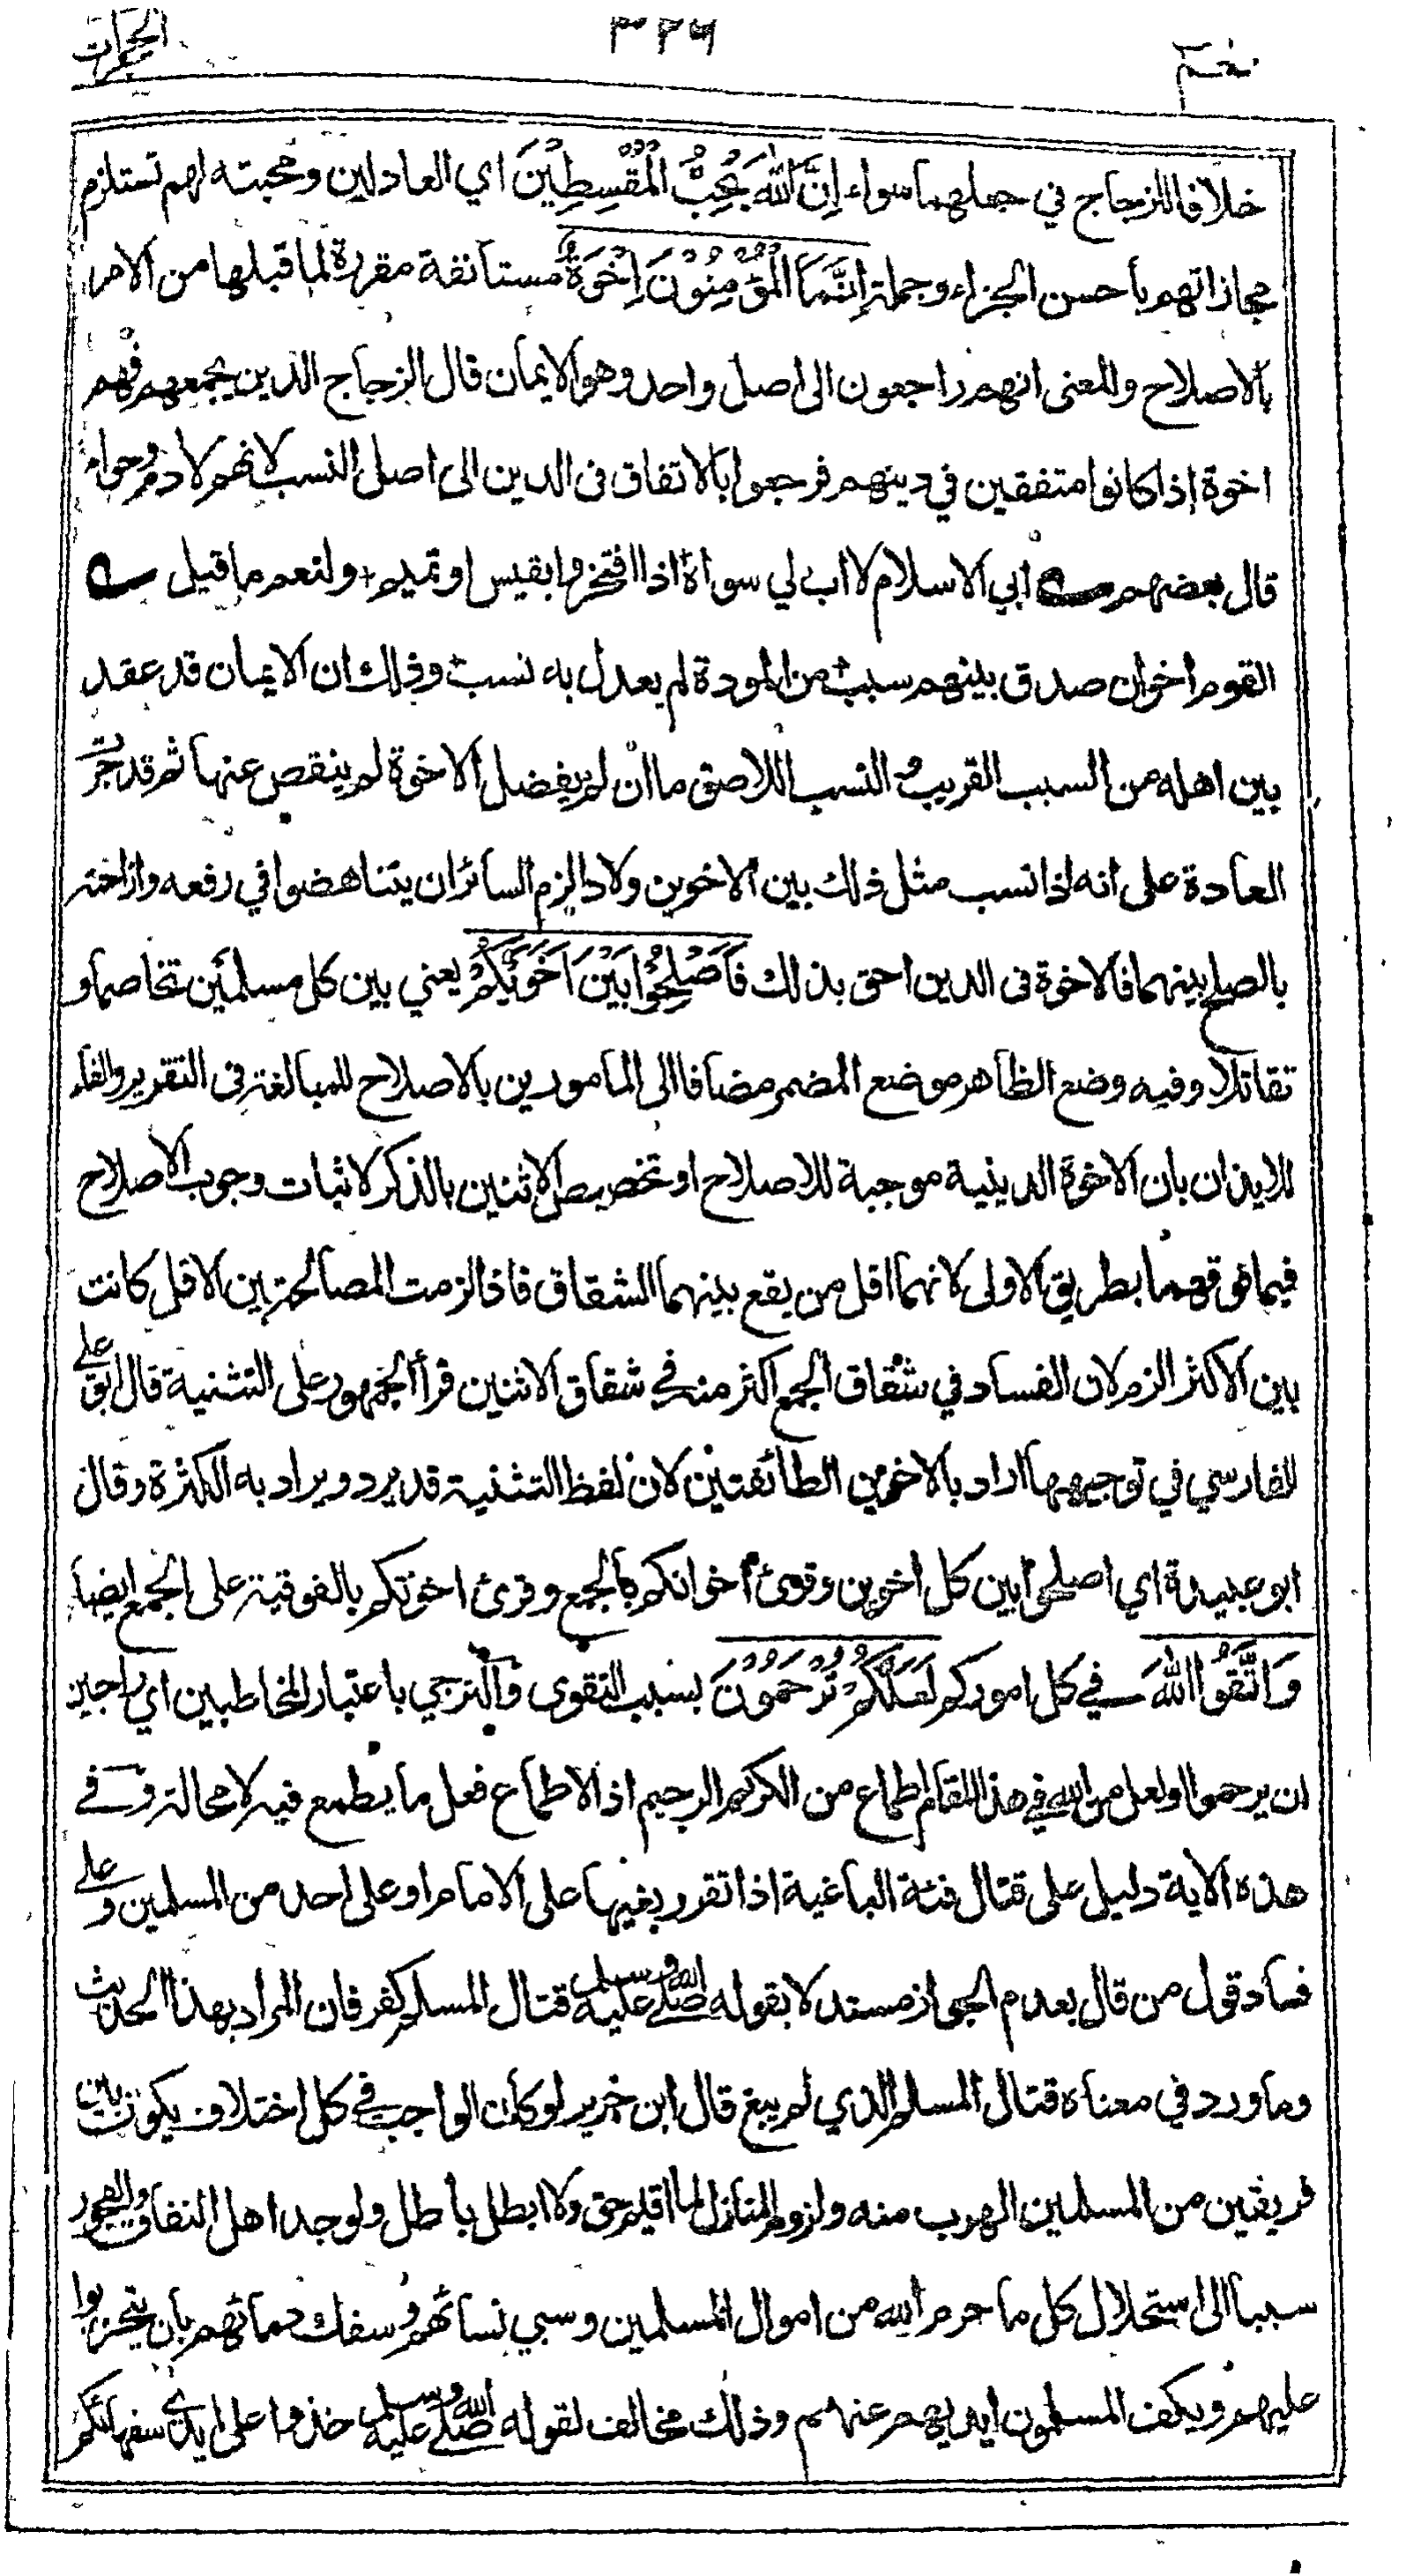 حٰم ٣٢٦ الحجرات
خلافا للزجاج في جعلهما سواء إِنَّ اللَّهَ يُحِبُّ الْمُقْسِطِينَ اي العادلين ومحبته لهم تستلزم
مجازاتهم بأحسن الجزاء وجملة إِنَّمَا الْمُؤْمِنُونَ إِخْوَةٌ مستأنفة مقررة لما قبلها من الامر
بالاصلاح والمعنى انهم راجعون الى اصل واحد وهو الايمان قال الزجاج الدين يجمعهم فهم
اخوة اذا كانوا متفقين في دينهم فرجعوا بالاتفاق في الدين الى اصل النسب لانهم لآدم وحواء
قال بعضهم ـه ابي الاسلام لا اب لي سواه اذا افتخروا بقيس او تميم + ولنعم ما قيل ـه
القوم اخوان صدق بينهم سبب من المودة لم يعدل به نسب وذلك ان الايمان قد عقد
بين اهله من السبب القريب والنسب اللاصق ما ان لم يفضل الاخوة لم ينقص عنها ثم قد جرت
العادة على انه اذا نسب مثل ذلك بين الاخوين ولادا لزم السائر ان يتناهضوا في رفعه وازاحته
بالصلح بينهما فالاخوة في الدين احق بذلك فَأَصْلِحُوا بَيْنَ أَخَوَيْكُمْ يعني بين كل مسلمَين تخاصما و
تقاتلا وفيه وضع الظاهر موضع المضمر مضافا الى المامورين بالاصلاح للمبالغة في التقرير والفاء
للايذان بان الاخوة الدينية موجبة للاصلاح او تخصيص الاثنين بالذكر لاثبات وجوب الاصلاح
فيما فوقهما بطريق الاولى لانهما اقل من يقع بينهما الشقاق فاذا لزمت المصالحة بين الاقل كانت
بين الاكثر الزم لان الفساد في شقاق الجمع اكثر منه في شقاق الاثنين قرأ الجمهور على التثنية قال ابو علي
الفارسي في توجيهها اراد بالاخوين الطائفتين لان لفظ التثنية قد يرد ويراد به الكثرة وقال
ابو عبيدة اي اصلحوا بين كل اخوين وقرئ اخوانكم بالجمع وقرئ اخوتكم بالفوقية على الجمع ايضا
وَاتَّقُوا اللَّهَ في كل اموركم لَعَلَّكُمْ تُرْحَمُونَ بسبب التقوى والترجي باعتبار المخاطبين اي راجين
ان يرحموا ولعل من الله في هذا المقام اطماع من الكريم الرحيم اذ الاطماع فعل ما يطمع فيه لا محالة وفي
هذه الآية دليل على قتال فئة الباغية اذا تقرر بغيها على الامام او على احد من المسلمين وعلى
فساد قول من قال بعدم الجواز مستدلا بقوله صلى الله عليه وسلم قتال المسلم كفر فان المراد بهذا الحديث
وما ورد في معناه قتال المسلم الذي لم يبغ قال ابن جرير لو كان الواجب في كل اختلاف يكون بين
فريقين من المسلمين الهرب منه ولزوم المنازل لما اقيم حق ولا ابطل باطل ولوجد اهل النفاق والفجور
سببا الى استحلال كل ما حرم الله من اموال المسلمين وسبي نسائهم وسفك دمائهم بان يتحزبوا
عليهم ويكف المسلمون ايديهم عنهم وذلك مخالف لقوله صلى الله عليه وسلم خذوا على ايدي سفهائكم